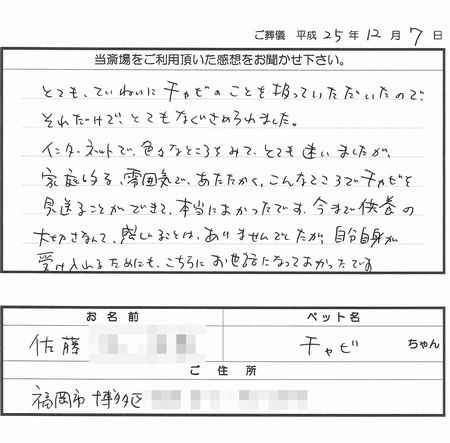 ご葬儀 平成 25 年 12 月 7 日
当斎場をご利用頂いた感想をお聞かせ下さい。
とても、ていねいに チャビのことを扱っていただいたので、
それだけで、とてもなぐさめられました。
インターネットで、色々なところをみて、とても 迷いましたが、
家庭的な、雰囲気で、あたたかく、こんなところでチャビを
見送ることができて、本当によかったです。今まで供養の
大切さなんて、感じることは、ありませんでしたが、自分自身が
受け入れるためにも、こちらに お世話になってよかったです
お名前 ペット名
佐藤 チャビ ちゃん
ご住所
福岡市 博多区